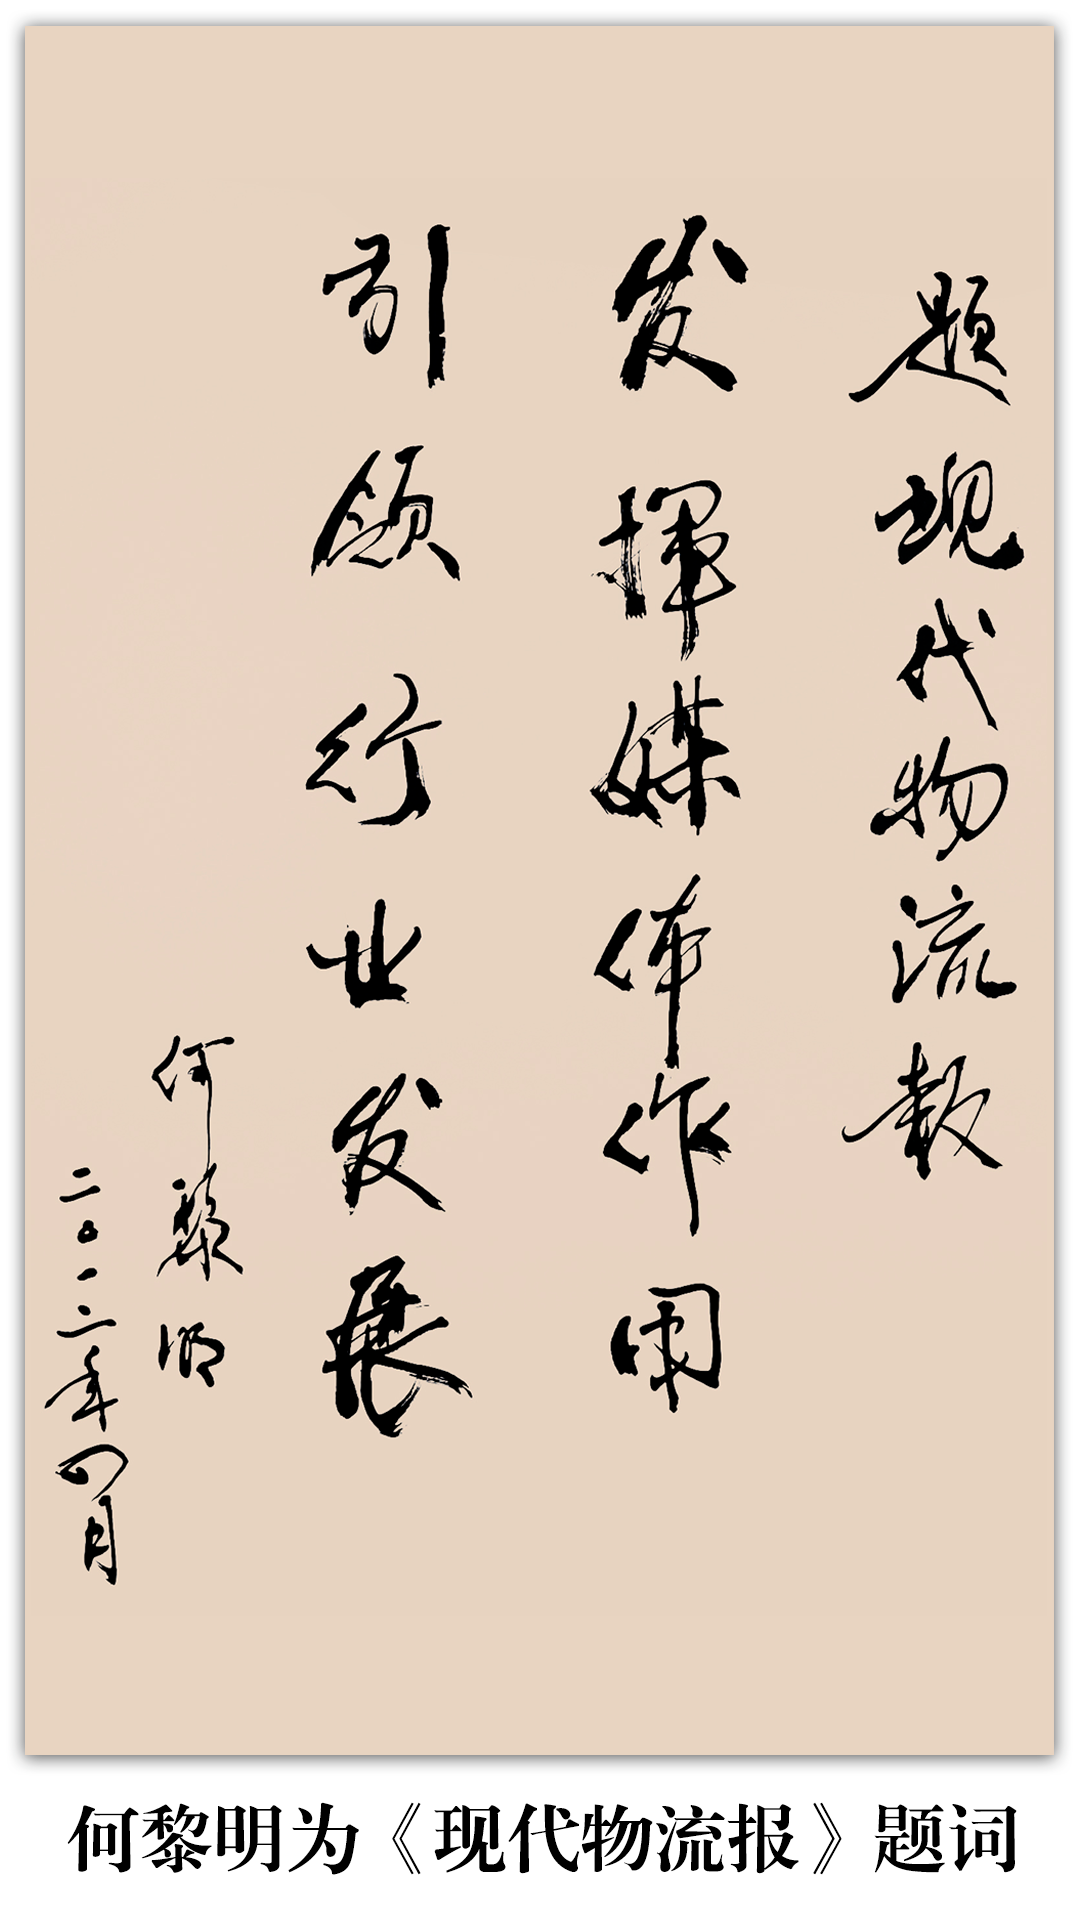 题现代物流报
发挥媒体作用
引领行业发展
何黎明
二〇一二年四月
何黎明为《现代物流报》题词